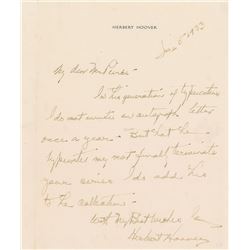 HERBERT HOOVER
June 6 1933
My dear Mr
In the generation of typewriters
I do not write an autograph letter
once a year. But that the
typewriter may not finally terminate
your series I do add this
to the collection.
With my Best wishes
Herbert Hoover